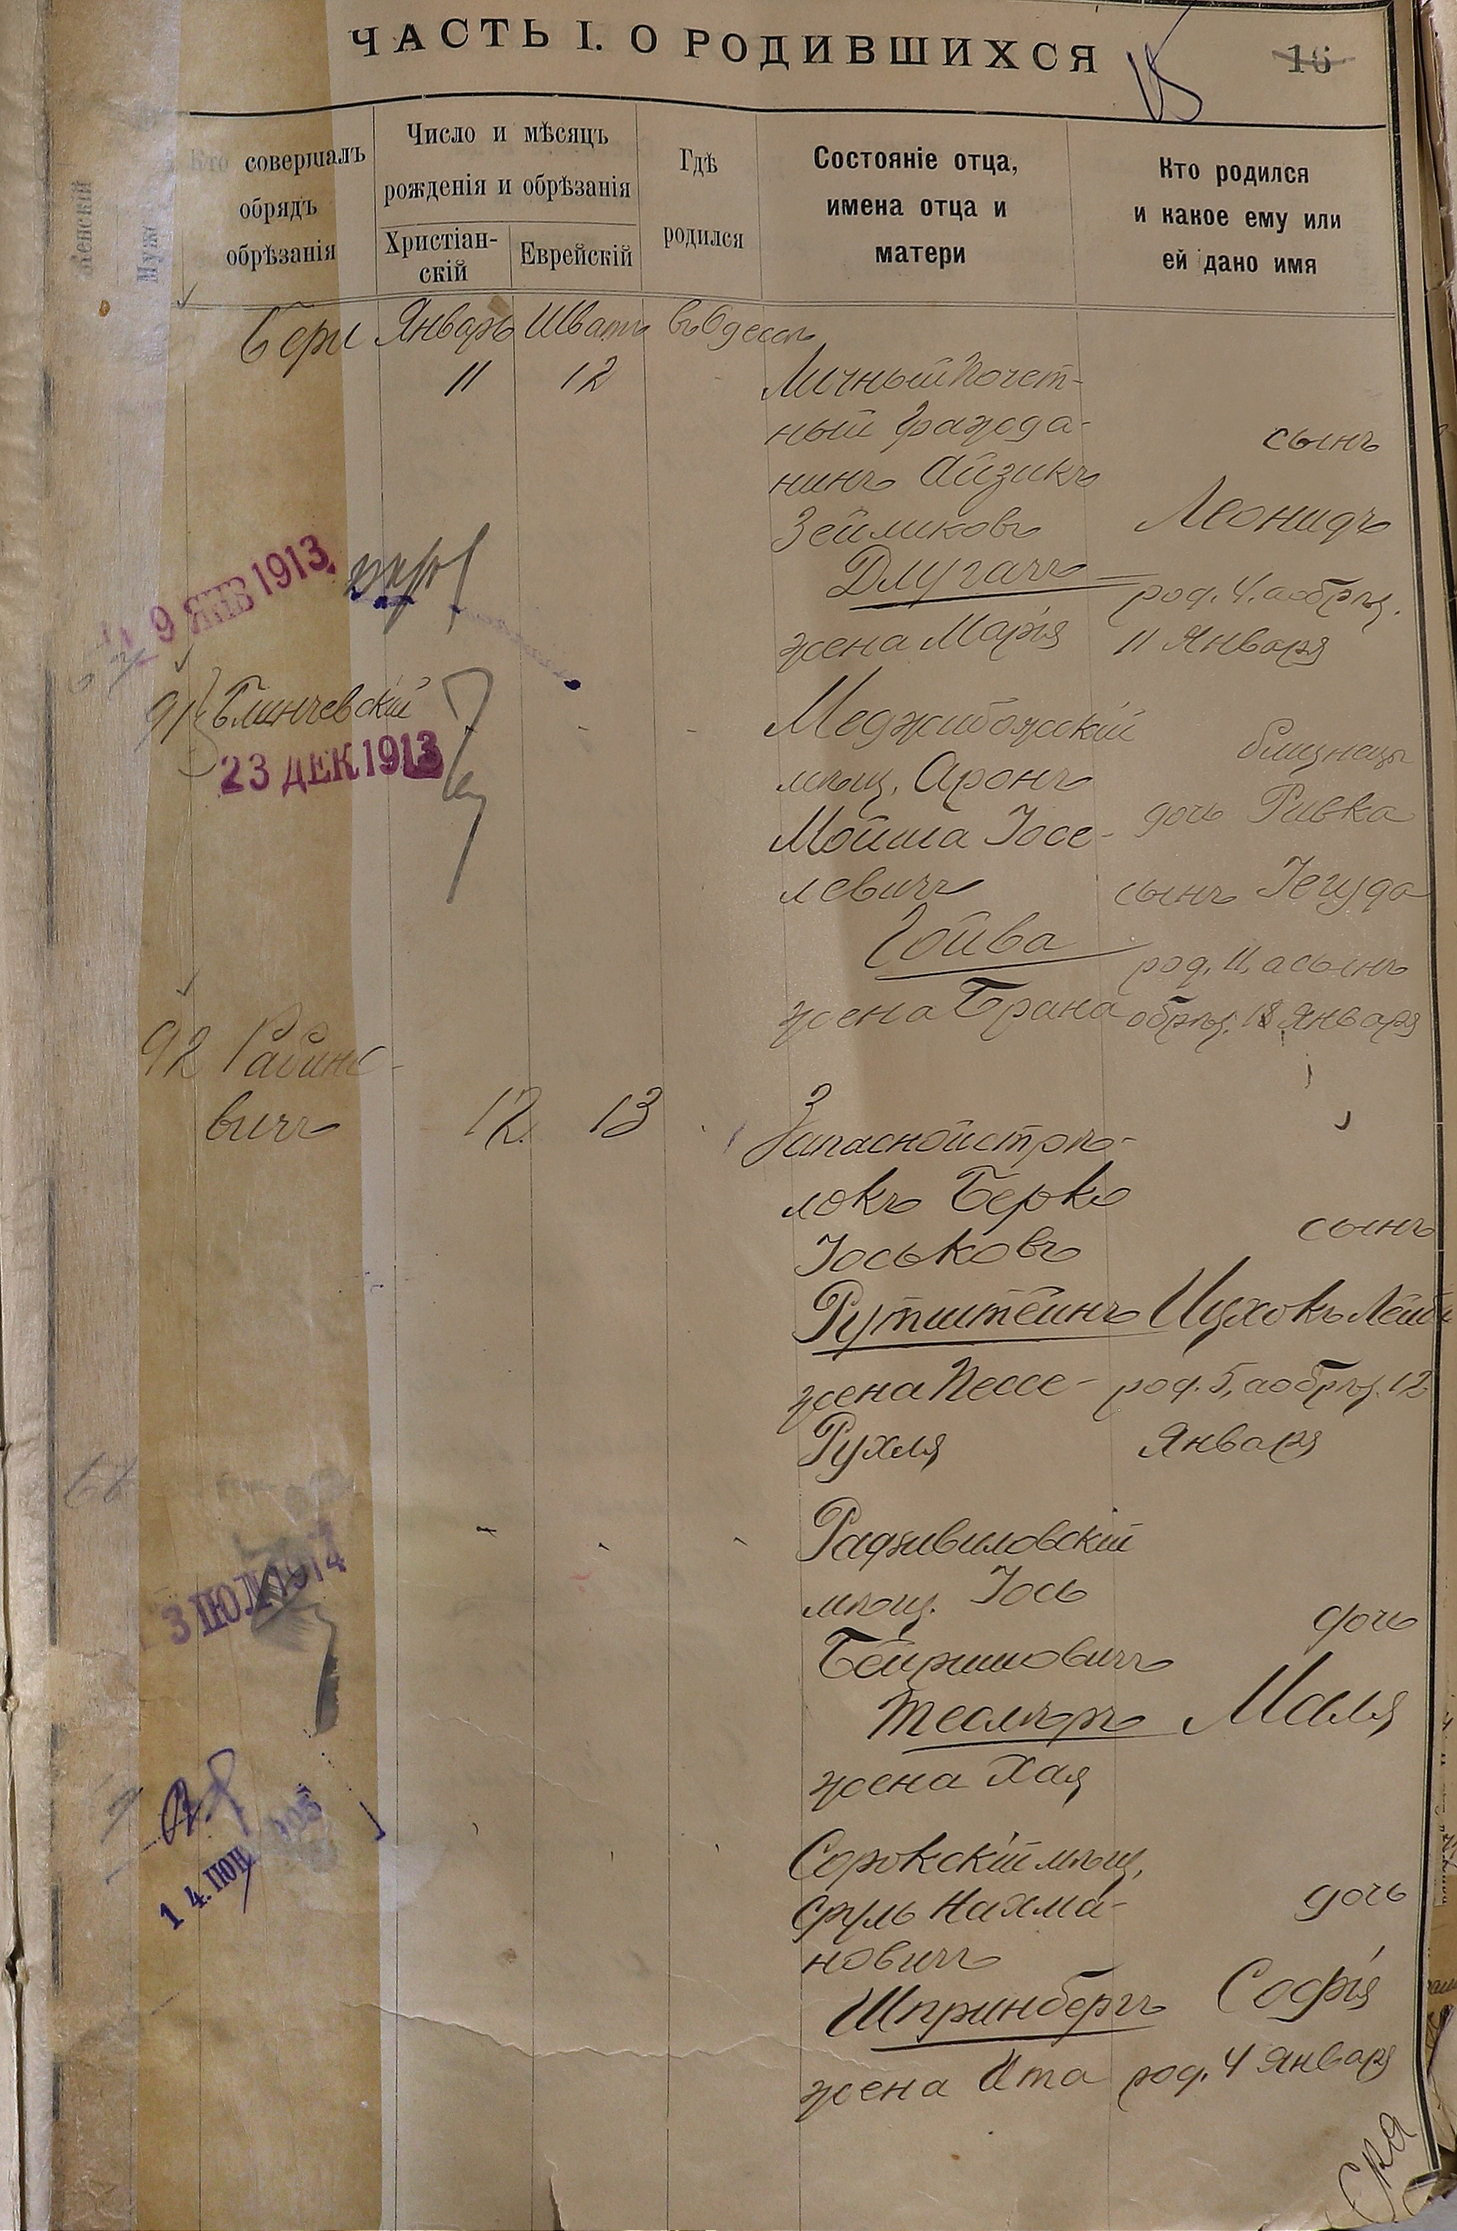 ЧАСТЬ I. О РОДИВШИХСЯ
15
16
Женскій
Муж
Кто совершалъ
обрядъ
обрѣзанія
Число и мѣсяцъ
рожденія и обрѣзанія
Христіан-
скій
Еврейскій
Гдѣ
родился
Состояніе отца,
имена отца и
матери
Кто родился
и какое ему или
ей дано имя
Январь Шватъ въ Одессѣ
11 12
Личный Почет-
ный Гражда-
нинъ Айзикъ
Зейликовъ
Длугачъ
жена Марія
сынъ
Леонидъ
род. 4, а обрѣз.
11 Января
9 ЯНВ 1913
91 Блинчевскій
23 ДЕК 1913
Меджибожскій
мѣщ. Аронъ
Мойша Іосе-
левичъ
Гойва
жена Брана
близнецы
дочь Ривка
сынъ Іегуда
род. 11, а сынъ
обрѣз. 18 Января
92 Рабино-
вичъ
12 13
Запасной стрѣ-
локъ Берко
Іоськовъ
Рутштейнъ
жена Пессе-
Рухля
сынъ
Ицхокъ Лейб
род. 5, а обрѣз. 12
Января
3 ИЮЛ 1914
Радзивиловскій
мѣщ. Іось
Бейришовичъ
Теслеръ
жена Хая
дочь
Маля
14. ИЮН
Сорокскій мѣщ.
Сруль Нахма-
новичъ
Шпринбергъ
жена Ита
дочь
Софія
род. 4 Января